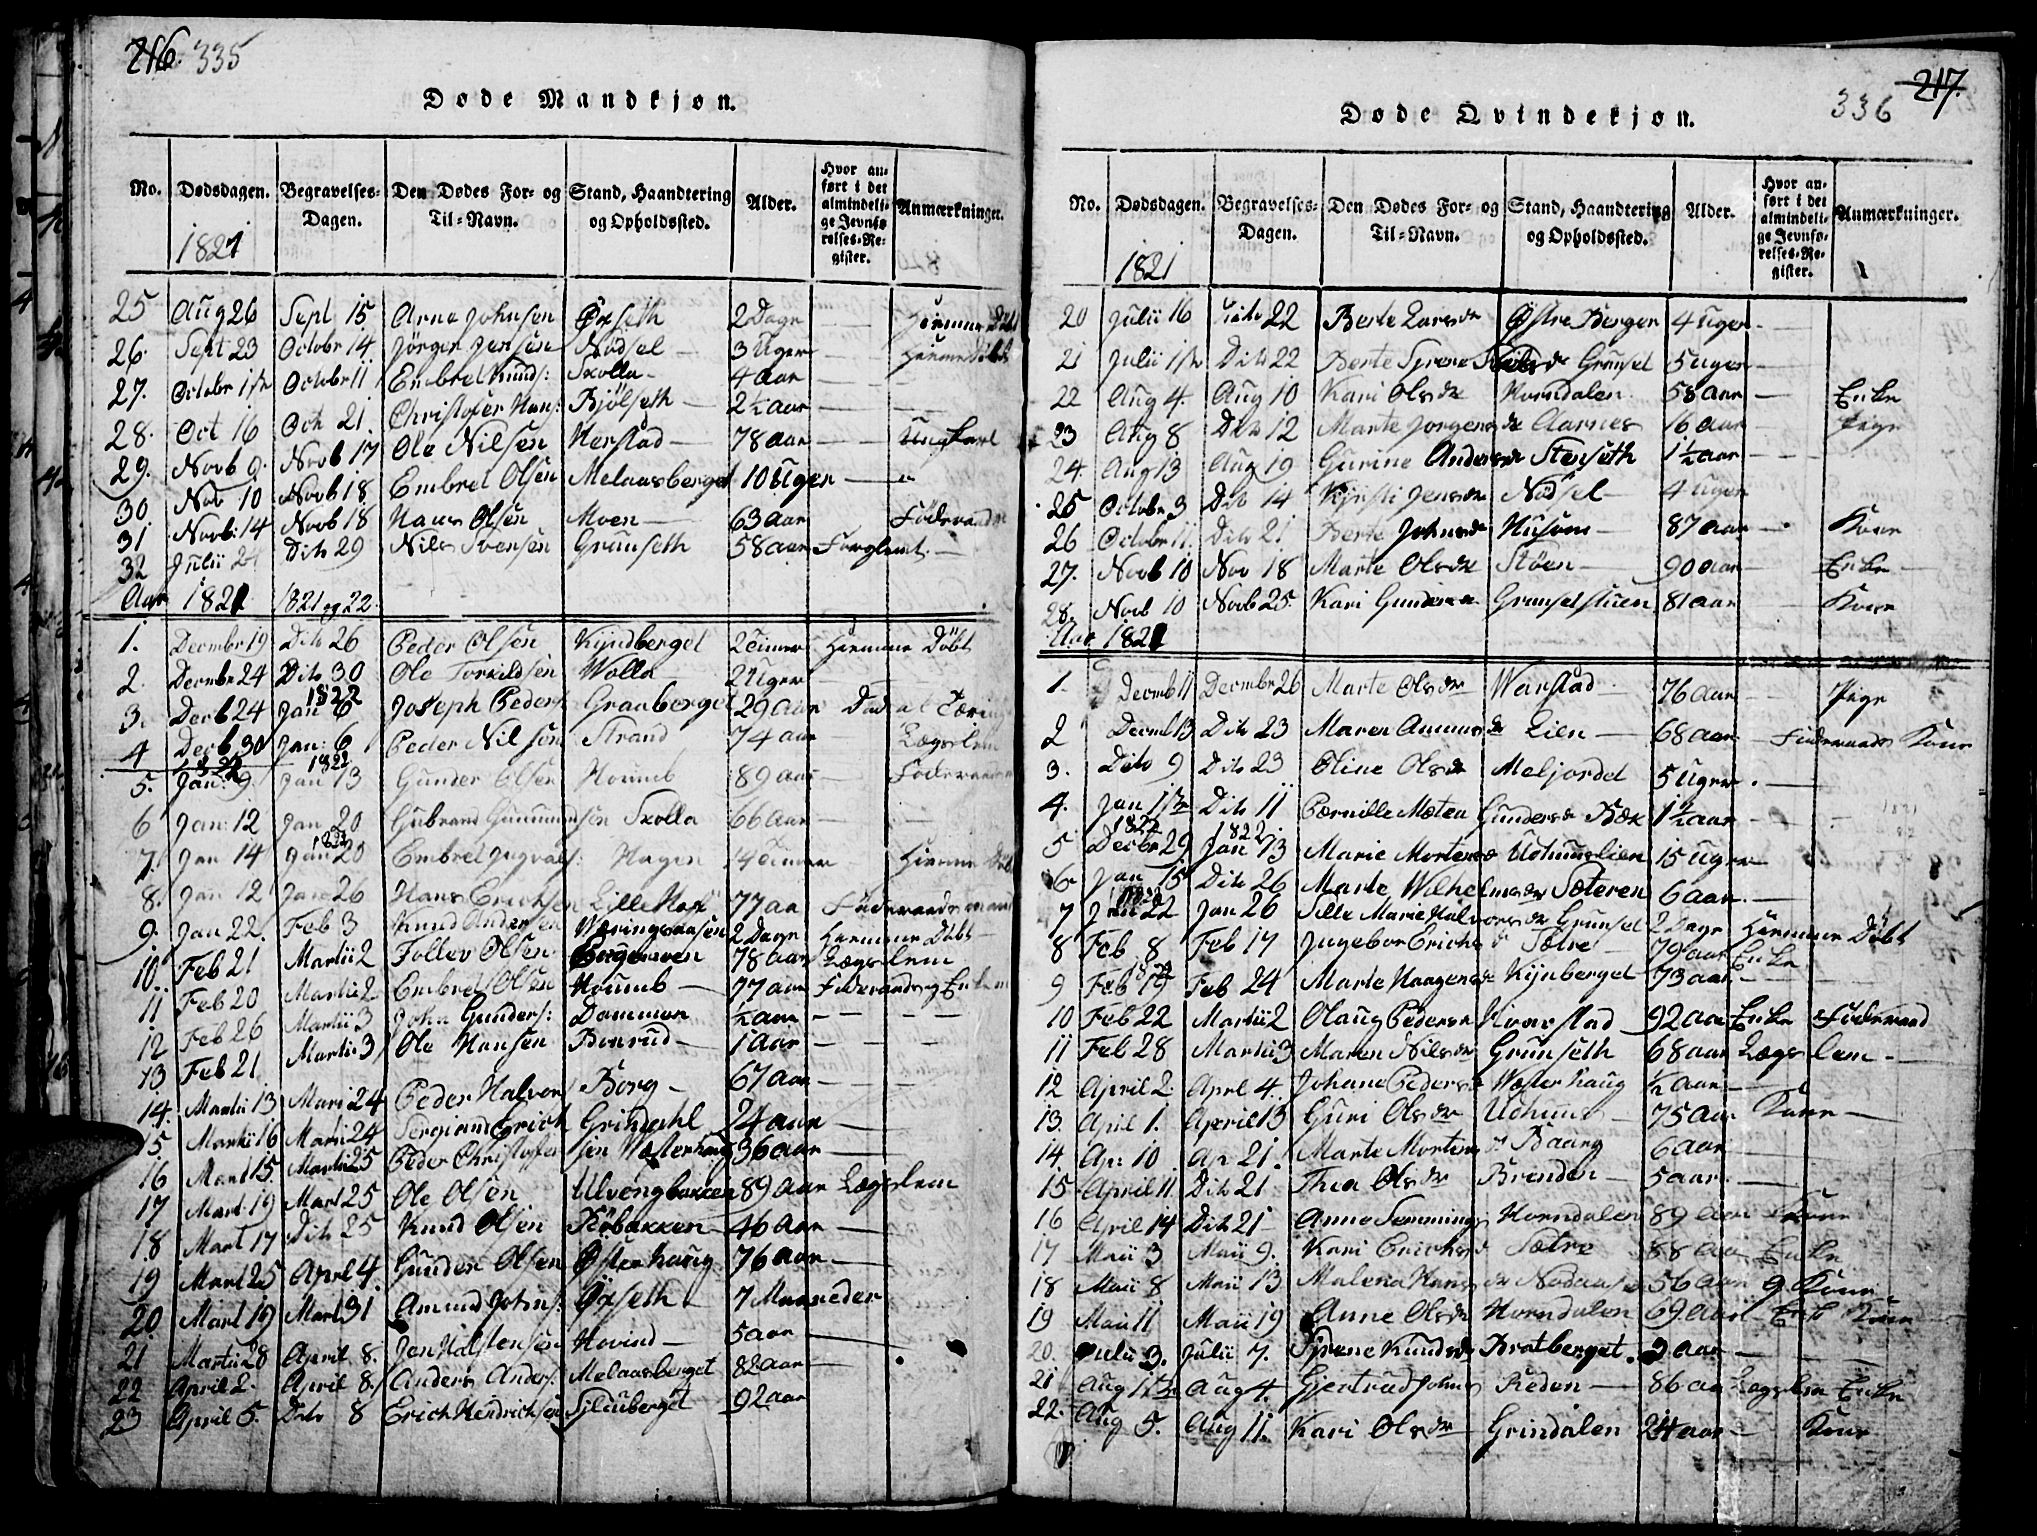 216. 335
Døde Mandkjøn.
No. Dødsdagen. Begravelses-Dagen. Den Dødes For- og Til-Navn. Stand, Haandtering og Opholdssted. Alder. Hvor anført i det almindelige Jevnførelses-Register. Anmærkninger.
1821
25 Aug 26 Sept 15 Arne Johnsen Øxseth 2 Dage Hiemme Døbt
26. Sept 23 Octobr 14 Jörgen Jensen Nödsel 3 Uger Hiemme Døbt
27. Octobr 1ste Octobr 11 Embret Knuds: Skolla 4 aar
28. Oct 16 Oct 21. Christofer Hans: Bjölseth 2½ aar
29. Novb 9. Novb 17 Ole Nilsen Herstad 78 aar Ungkarl
30 Nov 10 Novb 18 Embret Olsen Melaasberget 10 Uger
31 Novb: 14 Novb 18 Hans Olsen Moen 63 aar
32 Julii 24 Dito 29 Nils Svensen Grünseth 58 aar Forglemt.
Aar 1821 1821 og 22
1. Decembr 19 Dito 26 Peder Olsen Kyndberget 2 Timer Hiemme Döbt
2. Decmbr 24 Dito 30 Ole Torkildsen Wolla 2 Uger
3. Decb 24 Jan 6 1822 Joseph Peders Graaberget 29 aar
4 Decb 30 Jan: 6 Peder Nilsön Strand 74 aar Lægslem
5. Jan: 9. Jan 13 1822 Gunder Olsen Houmb 89 aar
6 Jan: 12 Jan 20 Gubrand Gunnundsön Skolla 66 aar
7. Jan 14 Jan 20 Embret Jngvals: Hagen 14 Timer Hiemme Döbt
8. Jan 12 Jan 26 Hans Erichsen Lille 77 aa Föderaadsmand
9. Jan 22. Feb 3 Knud Andersen Wæringsaasen 2 Dage Hiemme Døbt
10. Feb 21 Martii 2 Follev Olsen 78 aar Lægslem
11 Feb 20 Martii 2 Embret Olsen Houmb 77 aar
12 Feb 26 Martii 3 John Gunders: Dammen ½ aar
13 Feb 21 Martii 3 Ole Hansen Berrud 1 aar
14. Martii 13 Marti 24 Peder Halvors Borg 67 aar
15. Martii 16 Marti 24 Erich Grindahl 24 aar
16 Mart 15. Martii 25 Peder Christoffersen Westerhaug 36 aar
17 Mart. 19 Mart 25 Ole Olsen Ulvengbakken 89 aar Lægslem
18 Mart 17 Dito 25 Knud Olsen Købakken 46 aar
19 Mart 25 Aprl 4. Gunder Olsen Østerhaug 76 aar
20. Mart 19 Mart 31 Amund Johns: Øxseth 7 Maaneder
21 Martii 28 April 8. Jen Halstensön Hovind 5 aar
22 April 2. April 8. Anders Anders: Melaasberget 82 aar
23 April 5. Dito 8 Erich Hendrichsen Sjöliuberget 92 aar
336 217.
Døde Qvindekjøn.
No. Dødsdagen. Begravelses-Dagen. Den Dødes For- og Til-Navn. Stand, Haandtering og Opholdssted. Alder. Hvor anført i det almindelige Jevnførelses-Register. Anmærkninger.
1821
20 Julii 16 Dito 22 Berte Larsdr Østre Berger 4 Uger
21 Julii 1ste Dito 22 Berte Syrene Grünset 5 uger
22 Aug 4. Aug 10 Kari Olsdr Horndalen 58 aar Enke
23 Aug 8 Dito 12 Marte Jorgensdr Aarnes 16 aar Pige
24. Aug 13 Aug 19 Gurine Andersdr Stenseth 1½ aar
25 Octobr 3 Dito 14 Kjersti Jensdr Nödsel 4 uger
26 Octobr 11. Dito 21 Berte Johnsdr Husom 87 aar Kone
27. Novb 10 Nov 18 Marte Olsdr Stöen 90 aar Enke
28. Novb 10 Novb 25. Kari Gundersdr Grünselstuen 81 aar Kone
Aar 1821
1. Decmb 11 Decembr 26 Marte Olsdr Warstad 76 aar Pige
2 Decmb 13 Dito 23 Maren Amundsdr Lien 68 aar Föderaads Kone
3. Dito 9 Dito 23 Oline Olsdr Meljordet 5 Uger
4. Jan 1ste Dito 11 Pernille Mætea Gundersdr Bæk 1½ aar
5 Decbr 29 1822 Jan 13 1822 Marie Mortensdr Udhuuslien 15 Uger
6. Jan 15 Dito 26 Marte Wilhelmsdr Sæteren 6 aar
7 Jan 22 Jan 26 Sille Marie Halvorsdr Grünset 2 Dage Hiemme Döbt
8 Feb 8 Feb 17 Jngebor Erichsd Sætre 79 aar Enke
9 Feb 19 Feb 24 Marte Haagensdr Kynberget 73 aar
10 Feb 22 Martii 2 Olaug Pedersdr Hvarstad 92 aar Enke Föderaad
11 Feb 28 Martii 3 Maren Nilsdr Grünseth 68 aar Lægslem
12 April 2. Aprl 4. Johane Pedersd Wæsterhaug ½ aar
13. April 1. April 13 Guri Olsdr Udhuus 75 aar Kone
14. Apr 10 Ap 21. Marte Mortensd Baarg 6 aar
15 April 11 Dito 21 Thea Olsdr Brenden 5 aar
16 April 14 Dito 21 Anne Semmings Horndalen 89 aar Kone
17 Maii 3 Maii 9. Kari Erichsd Sætre 88 aar Enke
18 Maii 8 Maii 13 Malena Hansdr Nodaas 56 aar g Kone
19 Maii 11 Maii 19 Anne Olsdr Horndalen 69 aar
20. Julii 3. Julii 7. Syrene Knudsd Bratberget. 2 aar
21 Aug 1ste Aug 4. Gjertrud Johns Reden 86 aar Lægslem Enke
22. Aug 5. Aug 11. Kari Olsdr Grindalen 24 aar Kone